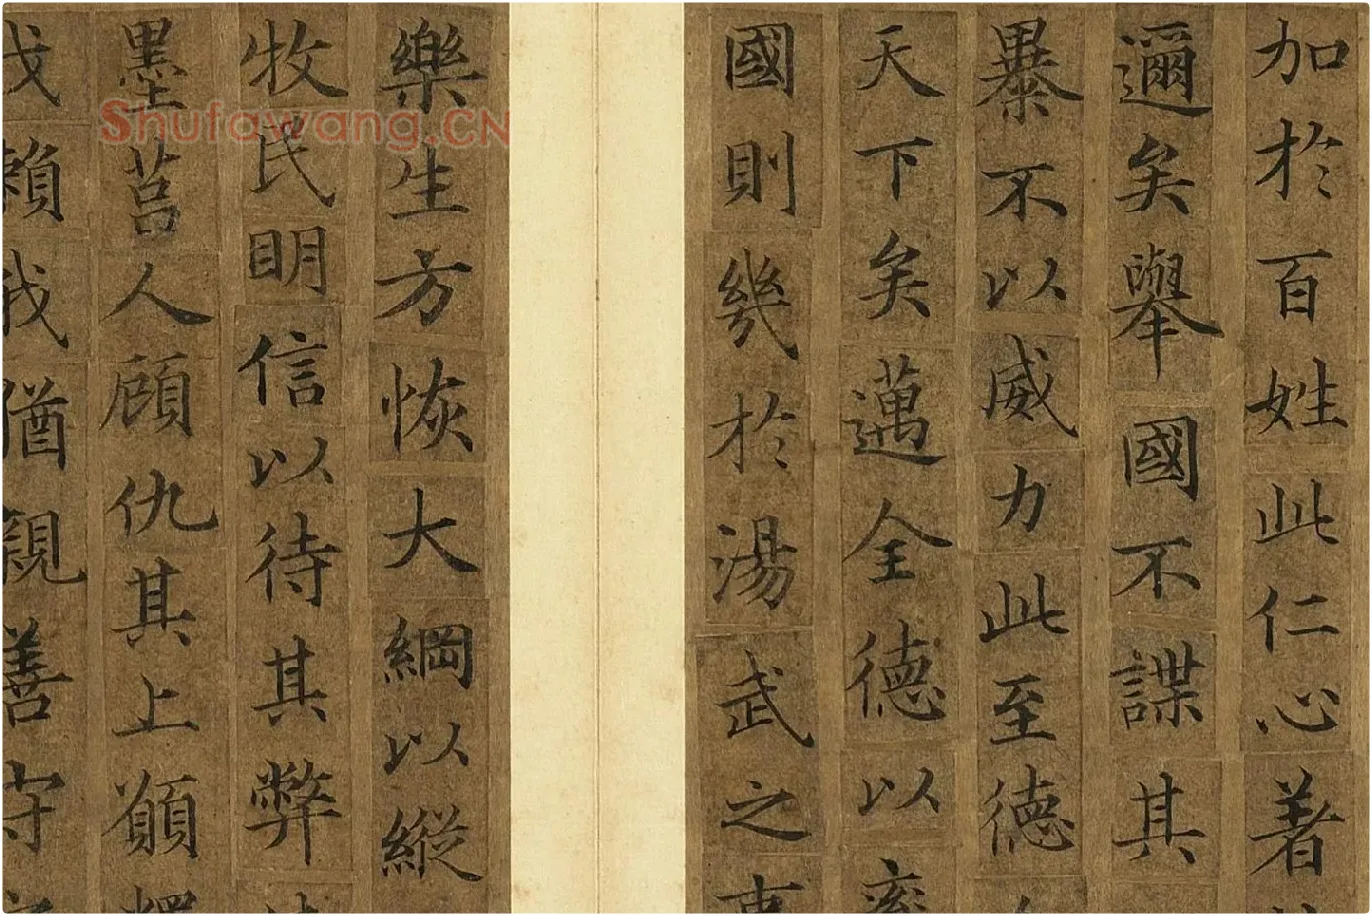 加於百姓此仁心著
邇矣舉國不謀其
暴不以威力此至德
天下矣邁全德以率
國則幾於湯武之事
樂生方恢大綱以縱
牧民明信以待其弊
墨莒人顧仇其上願釋
戈賴我猶親善守
Shufawang.CN